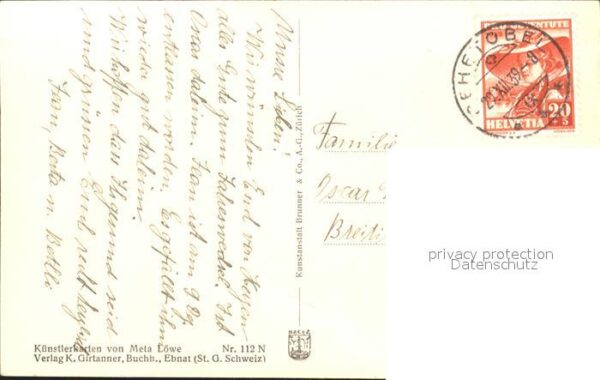 Meine Lieben!
Wir wünschen Euch von Herzen
alles Gute zum Jahreswechsel. Ist
Oscar daheim. Jean ist am 9 Dez.
entlassen worden. Es gefällt ihm
wieder gut daheim.
Wir hoffen das Ihr gesund seid
und grüssen Euch recht herzlich
Jean, Berta u. Bethli
Familie
Oscar
Breiti
Künstlerkarten von Meta Löwe Nr. 112 N
Verlag K. Girtanner, Buchh., Ebnat (St. G. Schweiz)
Kunstanstalt Brunner & Co., A.-G., Zürich
REHETOBEL
XII.39
HELVETIA
20
5
privacy protection
Datenschutz